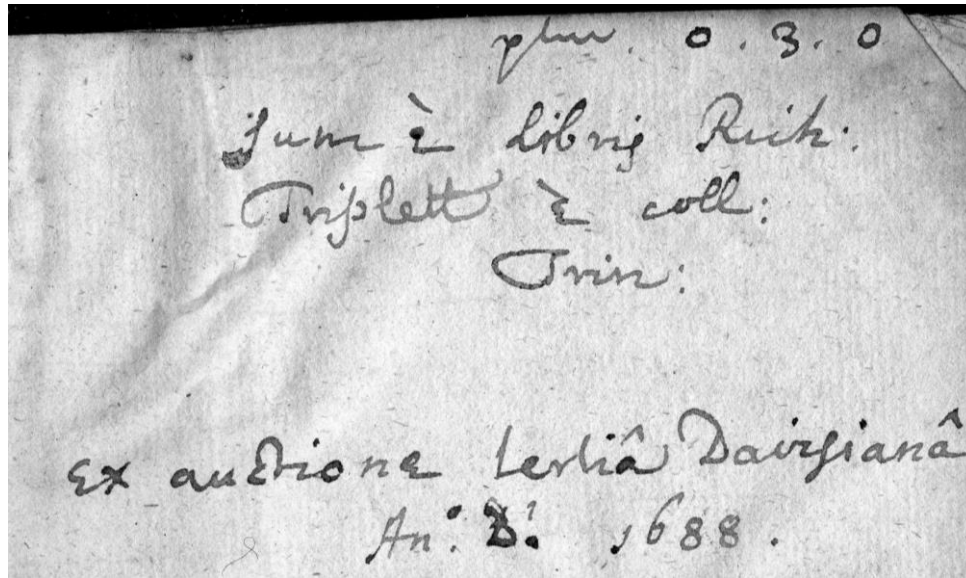 0. 3. 0
Sum è Libris Rich:
Triplett è coll:
Trin:
Ex auctione tertiâ Davisianâ
An°. D! 1688.